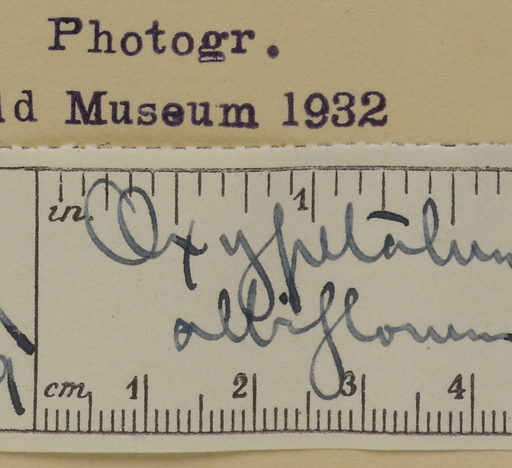 Photogr.
ld Museum 1932
in. 1
Oxypetalum
albiflorum
cm. 1 2 3 4